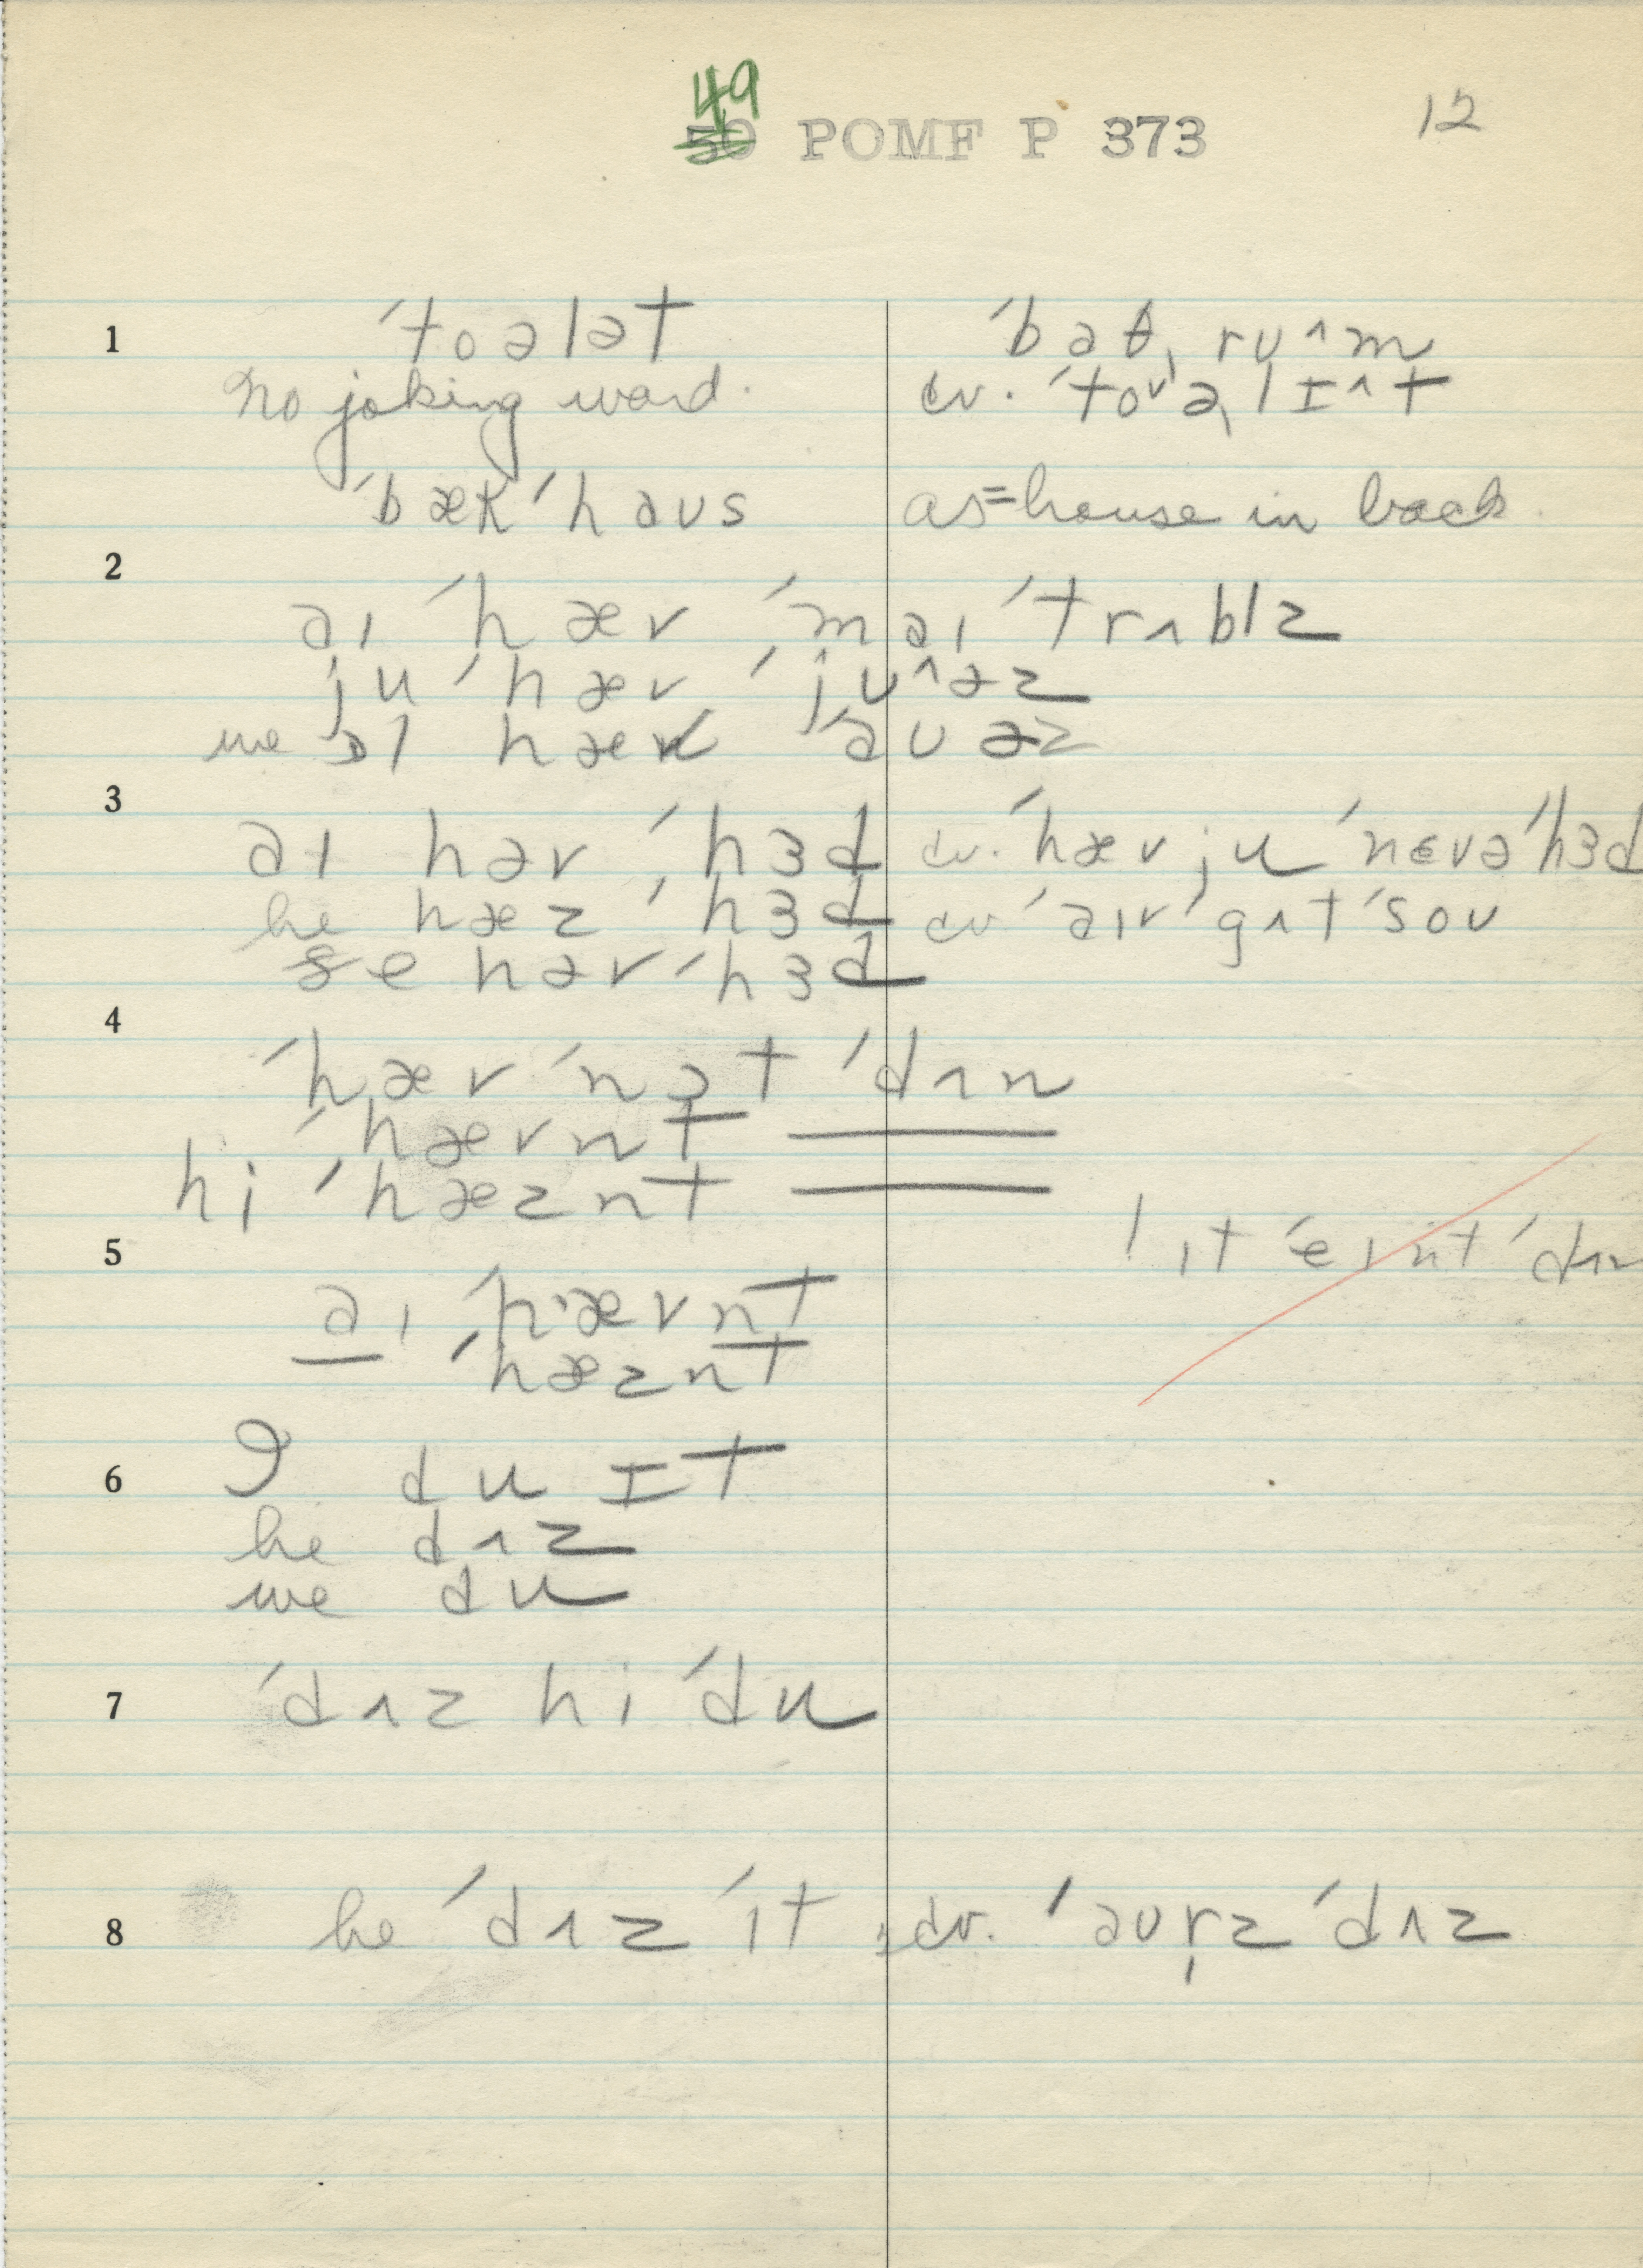 49
50 POMF P 373
12
1 ˈtoələt ˈbaθˌruˆm
No joking word. cv. ˈtoᵛəˌlɪˆt
ˈbækˈhaus as = house in back.
2
aɪ ˈhæv ˈmaɪ ˈtrʌblz
ju ˈhæv ˈjuˆəz
we ɔl hæv ˈauəz
3
aɪ həv ˈhɜd cv. ˈhæv ju ˈnɛvə ˈhɜd
he hæz ˈhɜd cv ˈaɪv ˈgʌt ˈsou
ðe həv ˈhɜd
4
ˈhæv ˈnɔt ˈdʌn
ˈhævnt —
hi ˈhæznt —
ɪt ˈeɪnt ˈdʌn
5
aɪ ˈhævnt
— ˈhæznt
6 I du ɪt
he dʌz
we du
7 ˈdʌz hi ˈdu
8 he ˈdʌz ˈɪt cv. ˈaurz ˈdʌz